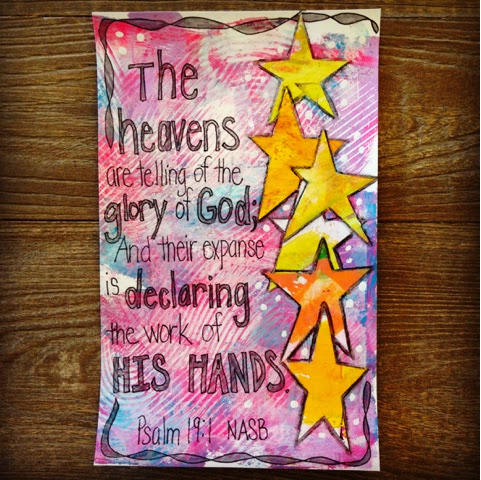 The
heavens
are telling of the
glory of God;
And their expanse
is declaring
the work of
HIS HANDS.
Psalm 19:1 NASB